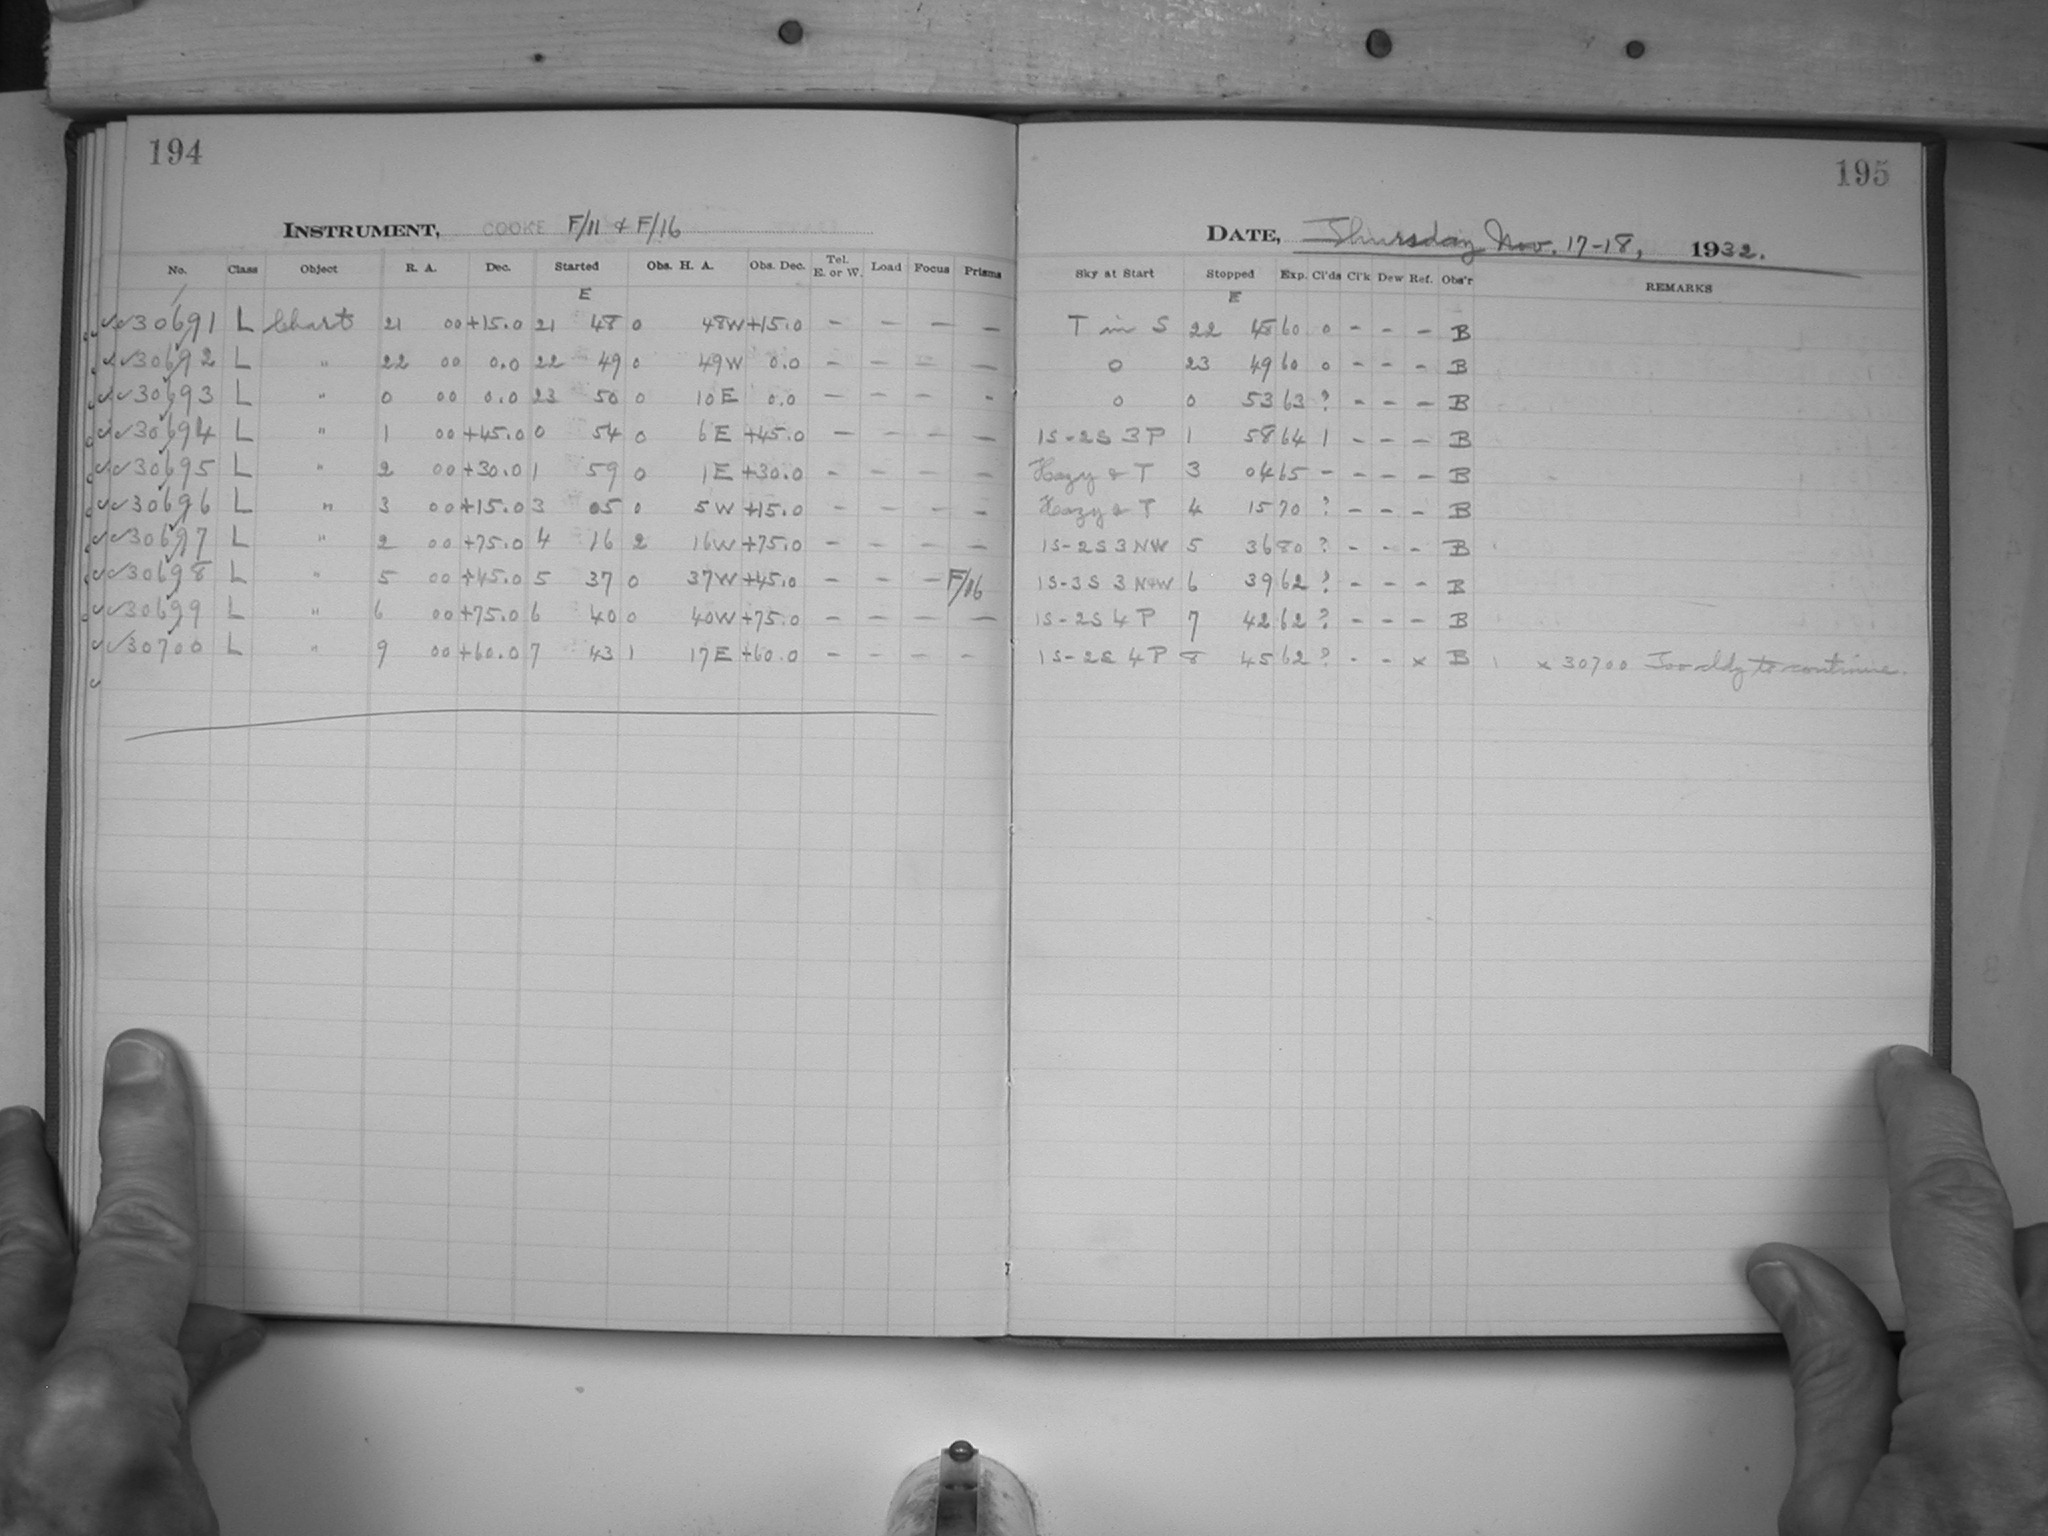 194
INSTRUMENT, COOKE F/11 & F/16
No. Class Object R. A. Dec. Started Obs. H. A. Obs. Dec. Tel. E. or W. Load Focus Prisms
E
30691 L Chart 21 00 +15.0 21 48 0 48W +15.0 - - - -
30692 L " 22 00 0.0 22 49 0 49W 0.0 - - - -
30693 L " 0 00 0.0 23 50 0 10E 0.0 - - - -
30694 L " 1 00 +45.0 0 54 0 6E +45.0 - - - -
30695 L " 2 00 +30.0 1 59 0 1E +30.0 - - - -
30696 L " 3 00 +15.0 3 05 0 5W +15.0 - - - -
30697 L " 2 00 +75.0 4 16 2 16W +75.0 - - - -
30698 L " 5 00 +45.0 5 37 0 37W +45.0 - - - F/16
30699 L " 6 00 +75.0 6 40 0 40W +75.0 - - - -
30700 L " 9 00 +60.0 7 43 1 17E +60.0 - - - -
195
DATE, Thursday Nov. 17-18, 1932.
Sky at Start Stopped Exp. Cl'ds Cl'k Dew Ref. Obs'r REMARKS
E
T in S 22 48 60 0 - - - B
0 23 49 60 0 - - - B
0 0 53 63 ? - - - B
1S-2S 3 P 1 58 64 1 - - - B
Hazy & T 3 04 65 - - - - B
Hazy & T 4 15 70 ? - - - B
1S-2S 3 NW 5 36 80 ? - - - B
1S-3S 3 N&W 6 39 62 ? - - - B
1S-2S 4 P 7 42 62 ? - - - B
1S-2S 4 P 8 45 62 ? - - x B x 30700 Too cldy to continue.